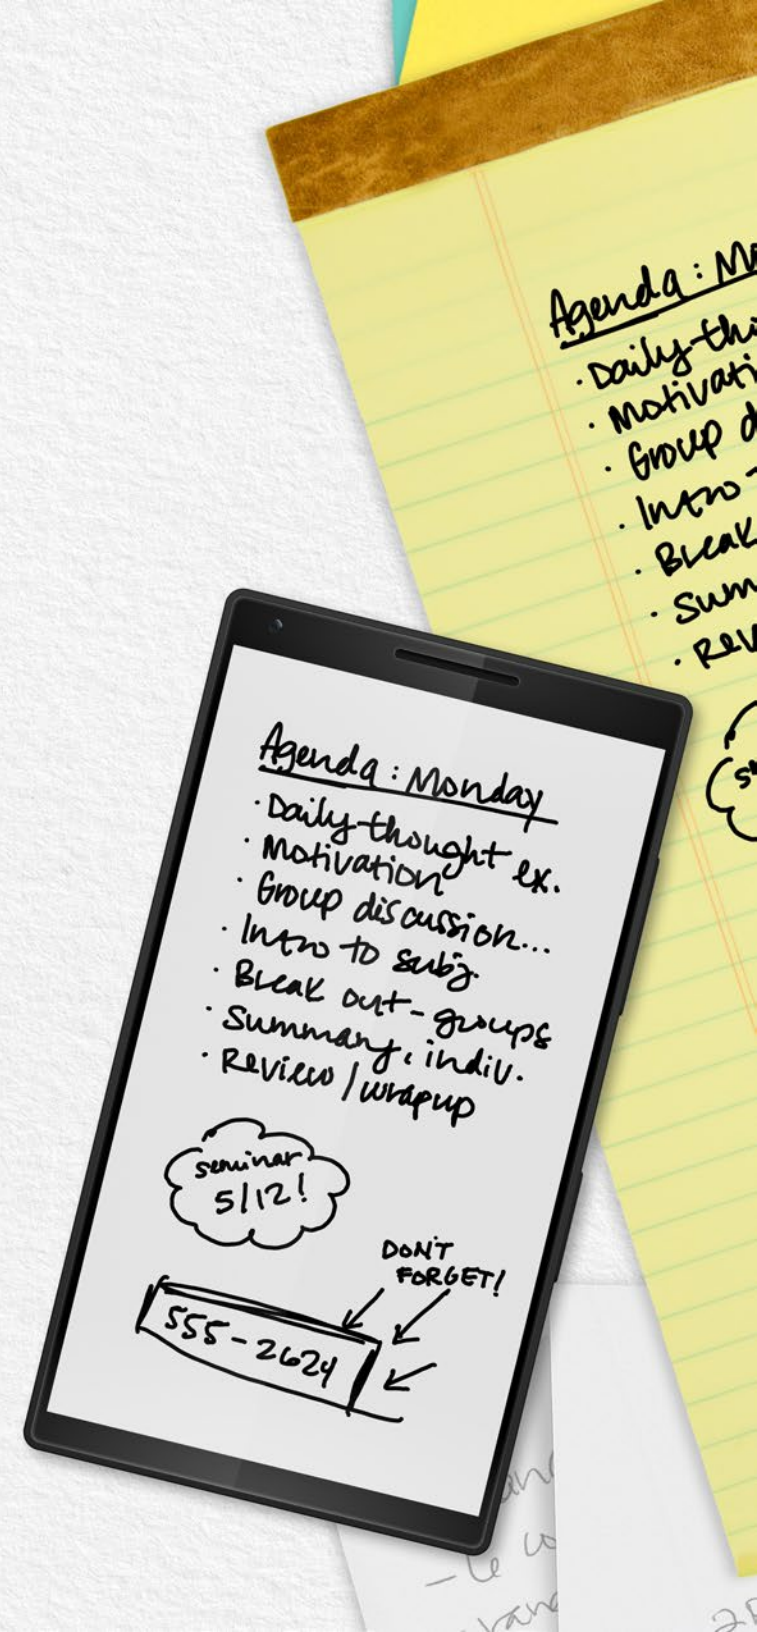 Agenda: Mo
· Daily thi
· Motivati
· Group d
· Intro
· Break
· Summ
· Rev
Agenda: Monday
· Daily thought ex.
· Motivation
· Group discussion...
· Intro to subj.
· Break out-groups
· Summary, indiv.
· Review/wrapup
seminar
5/12!
DON'T
FORGET!
555-2624